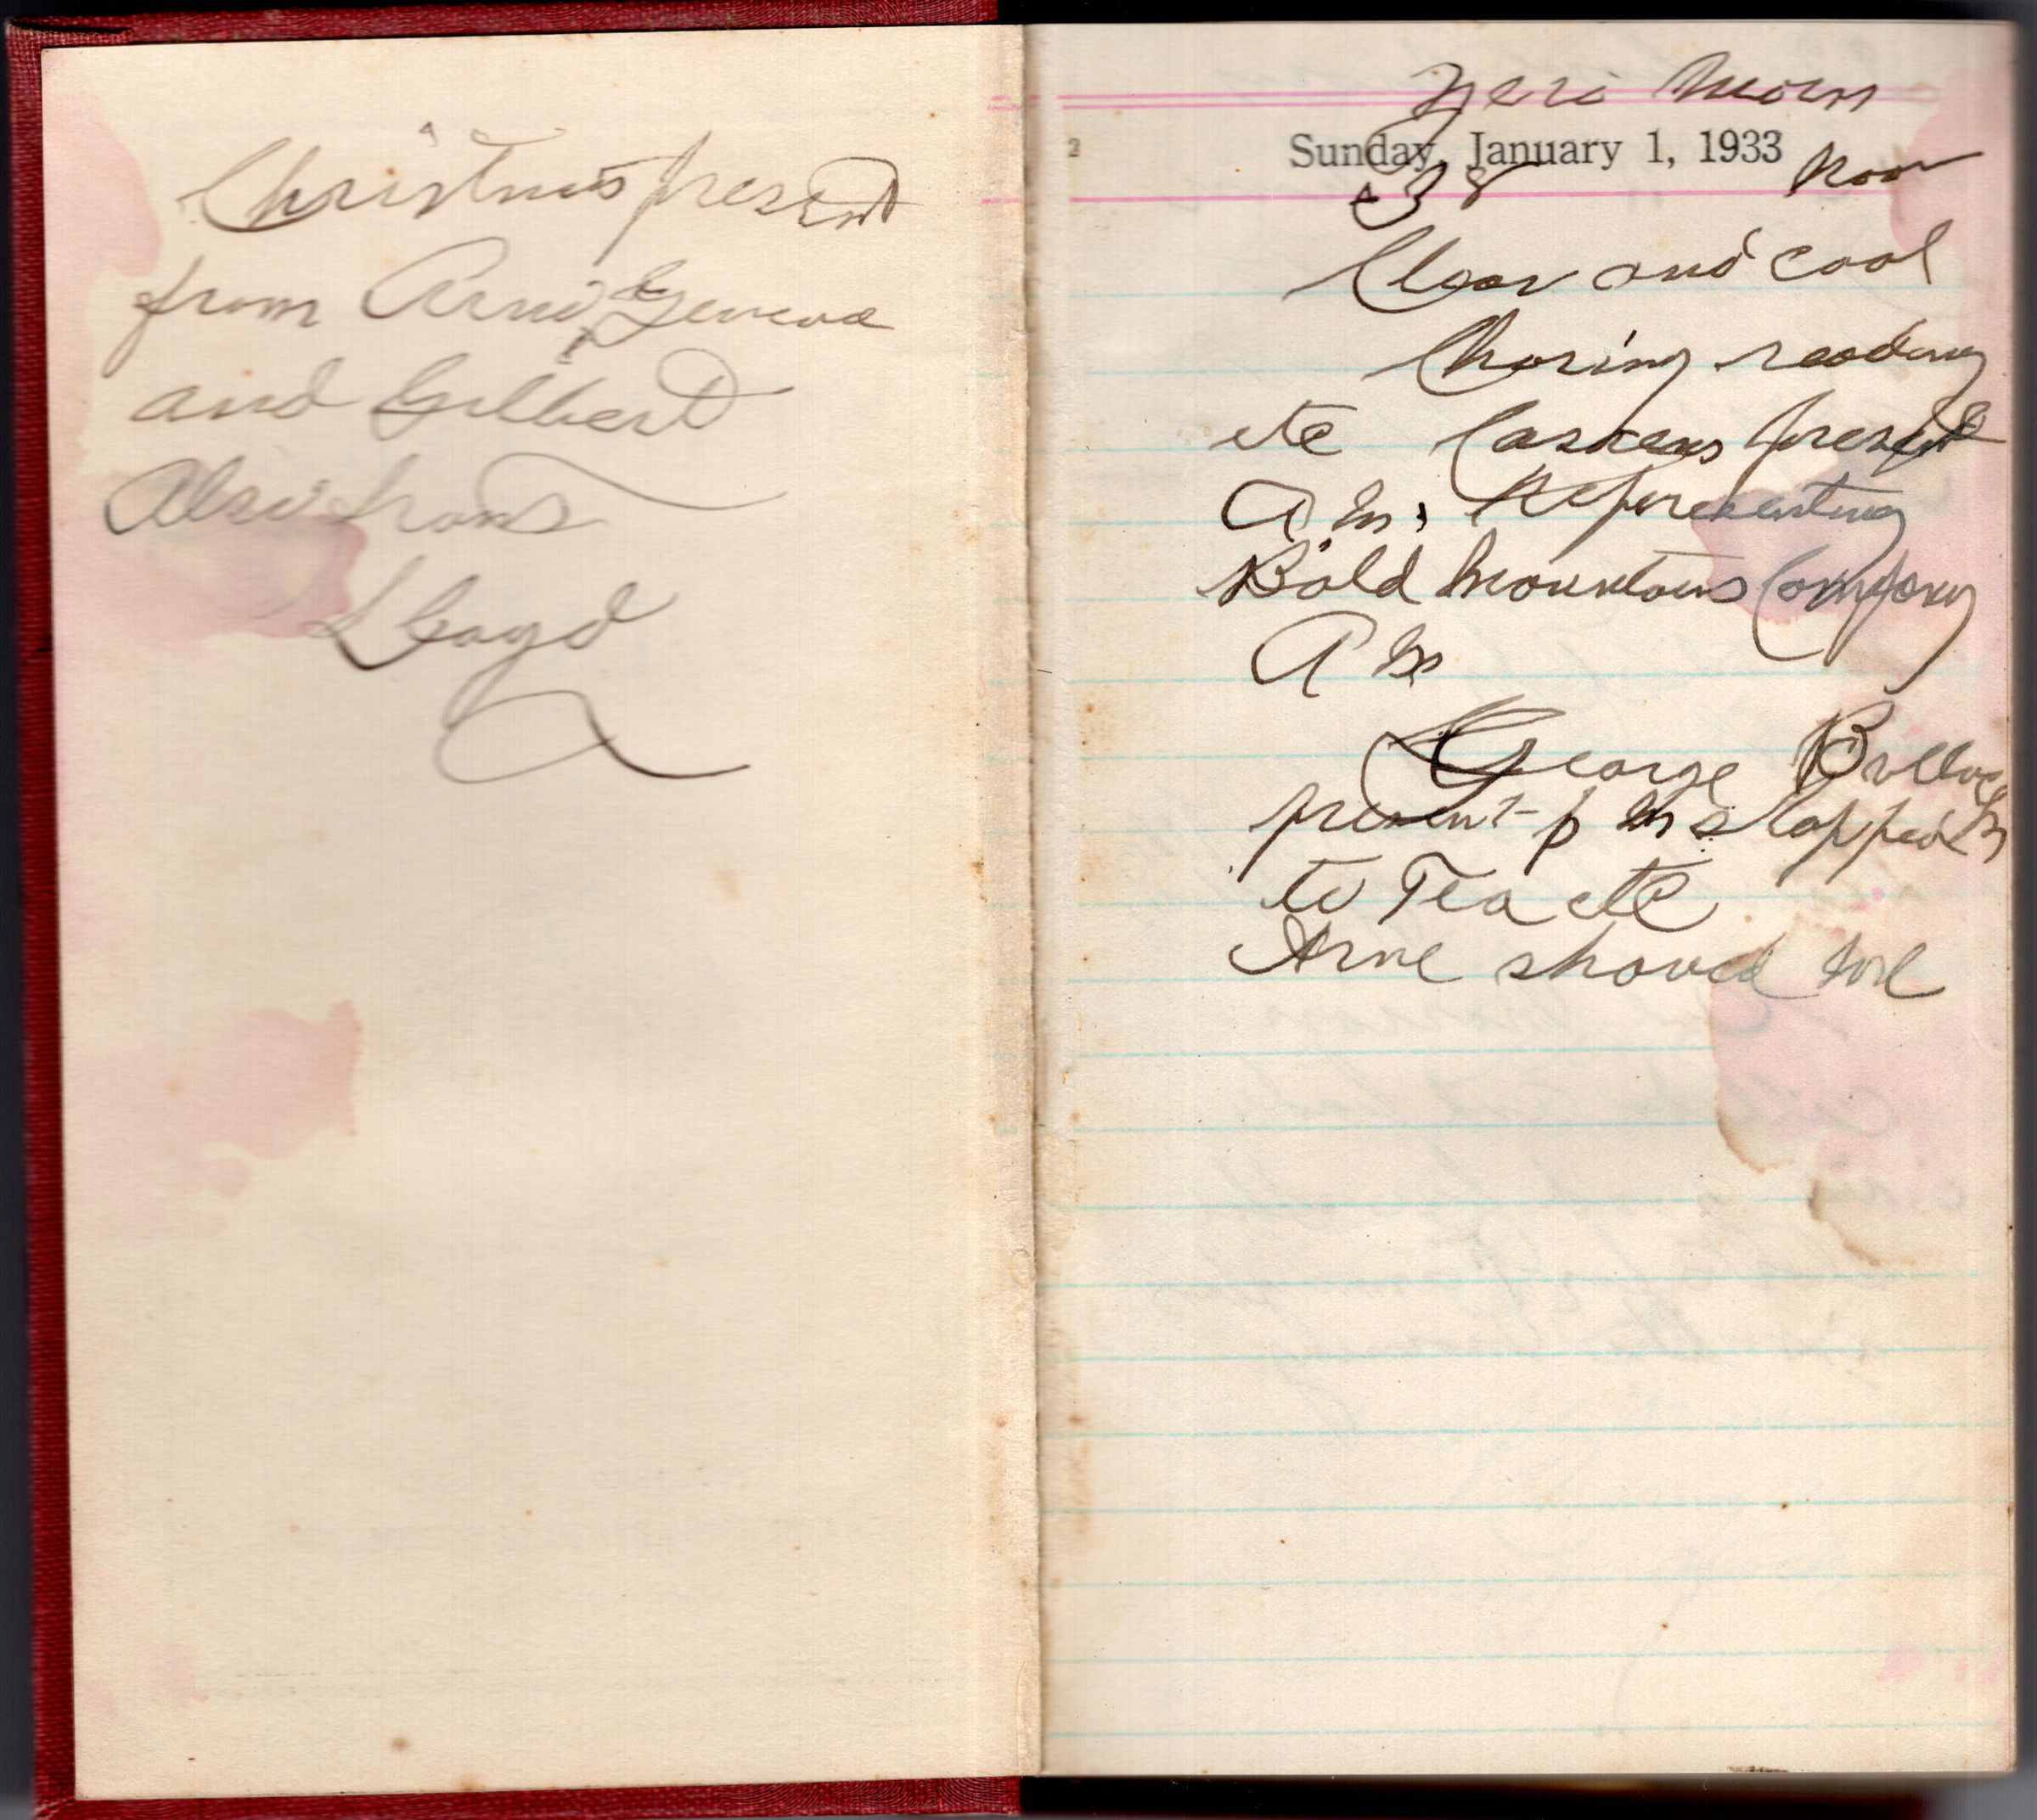 Christmas present
from Arne, Geneva
and Gilbert
Also from
Lloyd
Zero Morn
2
Sunday, January 1, 1933
+38 Noon
Clear and cool
Choring reading
etc present
A M. Representing
Bald Mountain Company
A M
George
present P M Stopped
to Tea etc
Arne shaved